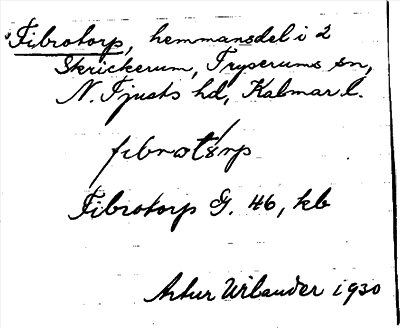 Fibrotorp, hemmansdel i 2
Skrickerum, Tryserums sn,
N. Tjusts hd, Kalmar l.
fibrotòrp
Fibrotorp G. 46, kb
Artur Wilander 1930